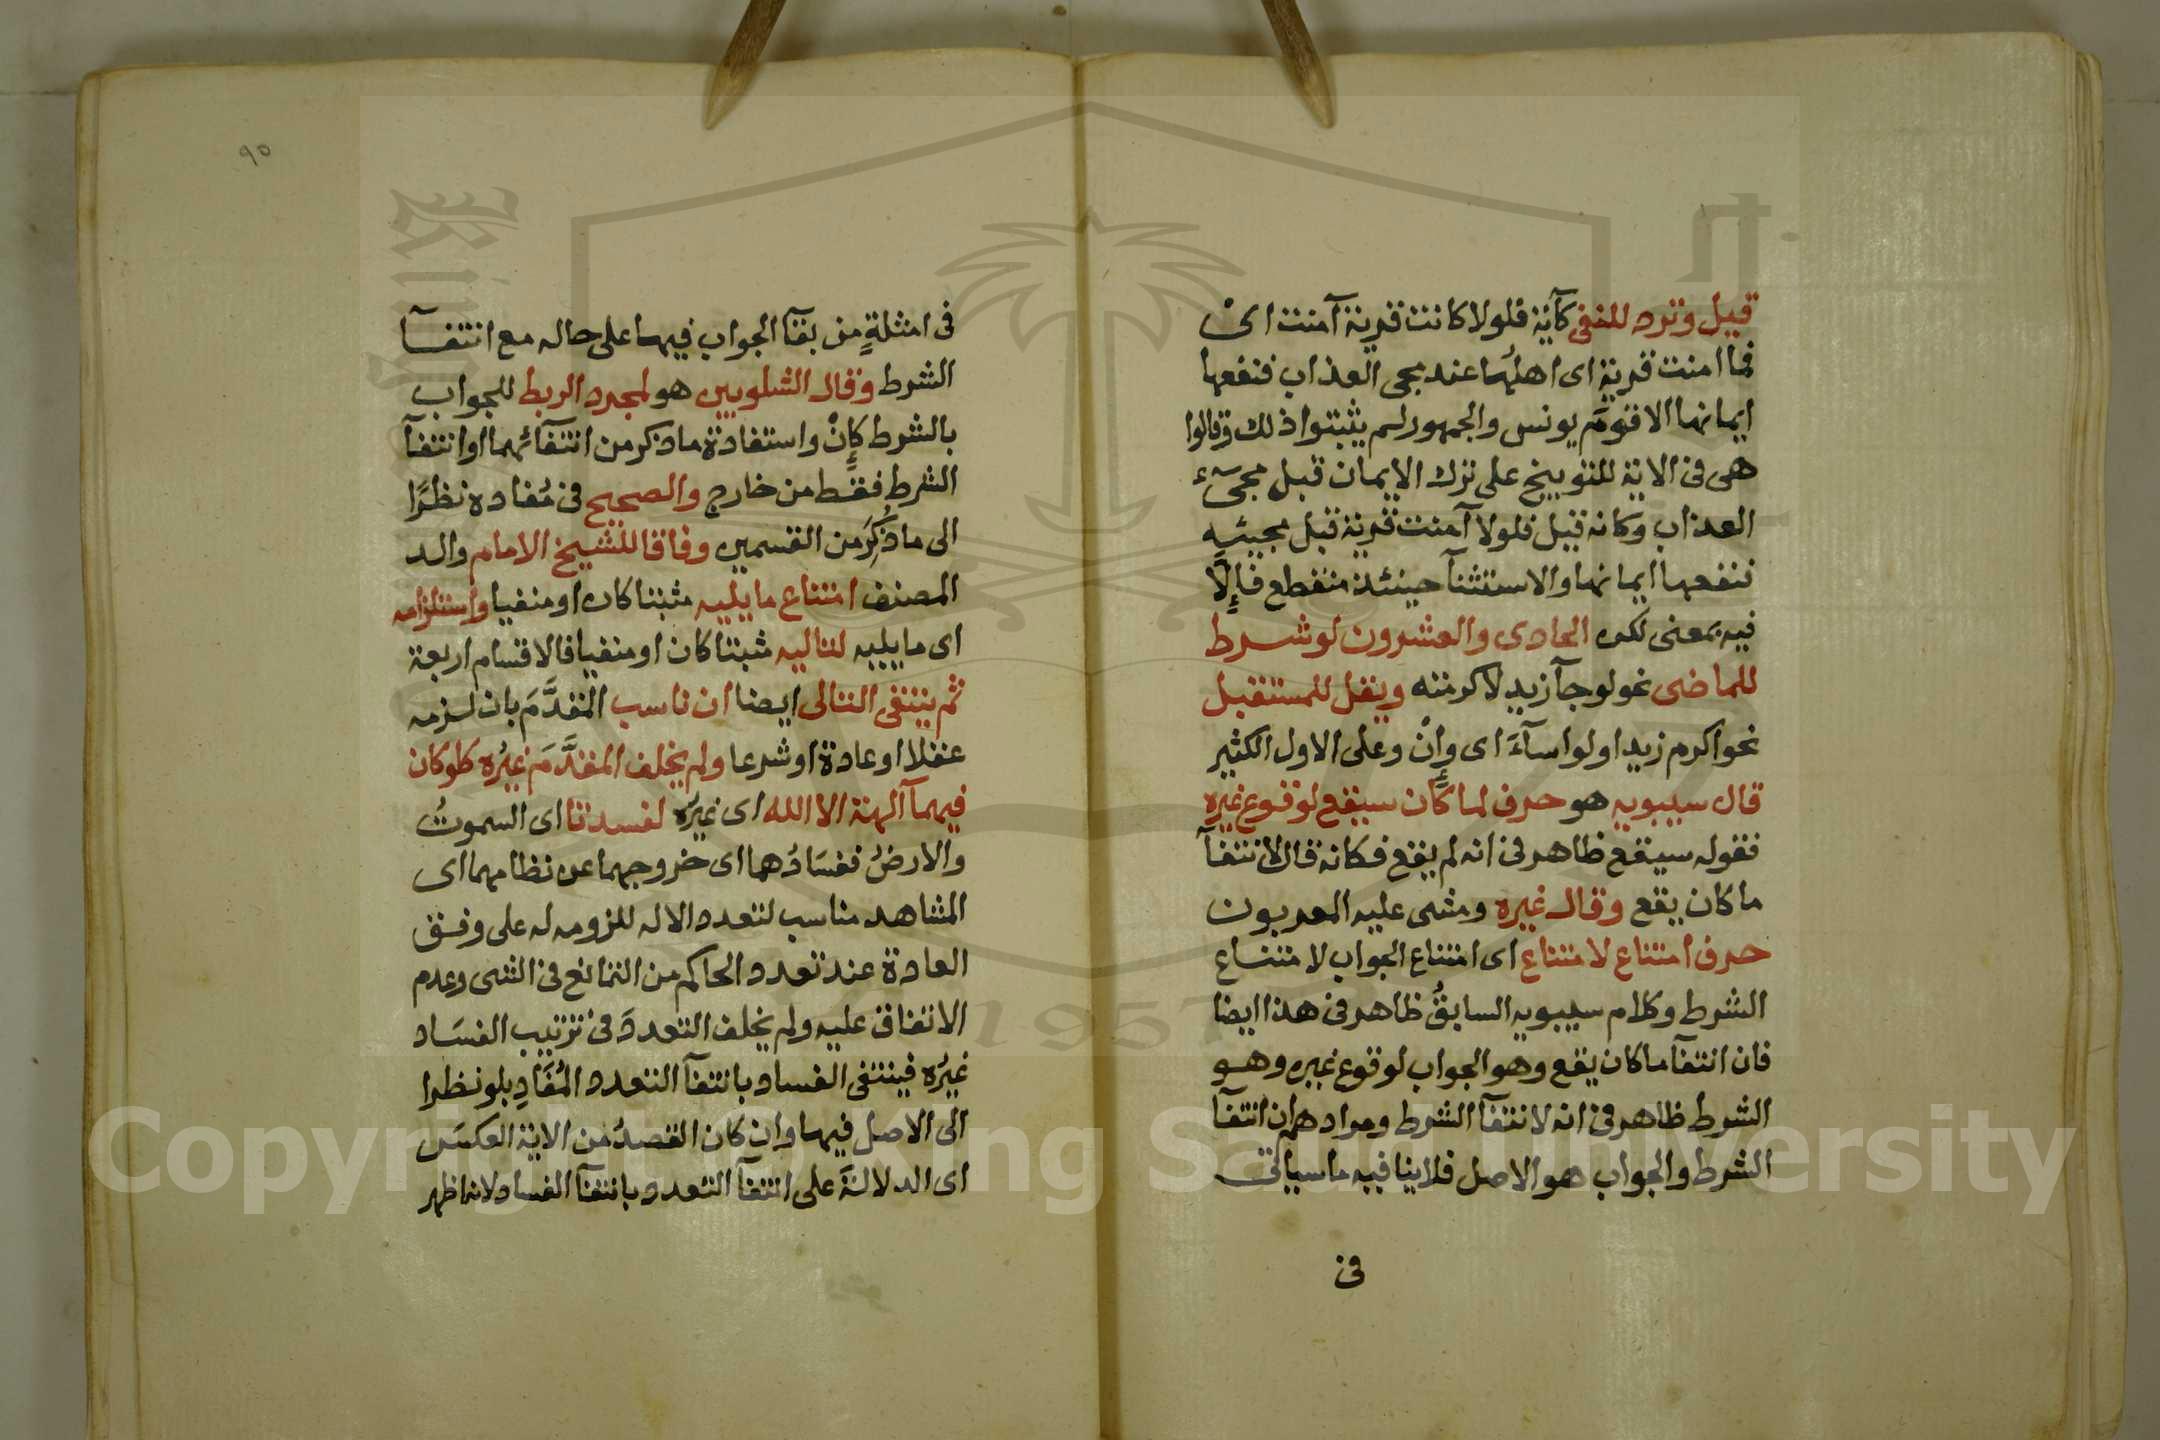 قيل وترد للنفى كآية فلولا كانت قرية آمنت اىْ
فما امنت قرية اى اهلُها عند مجى العذاب فنفعها
ايمانها الا قومَ يونس والجمهور لم يثبتوا ذلك وقالوا
هى فى الاية للتوبيخ على ترك الايمان قبل مجىء
العذاب وكانه قيل فلولا آمنت قرية قبل مجيئه
فنفعها ايمانها والاستثنآ حينئذ منقطع فإلّا
فيه بمعنى لكن الحادى والعشرون لو شرط
للماضى نحو لو جآ زيد لاكرمته ويقل للمستقبل
نحو اكرم زيدا ولو اسآءَ اى وانْ وعلى الاول الكثير
قال سيبويه هو حرف لما كان سيقع لوقوع غيره
فقوله سيقع ظاهر فى انه لم يقع فكانه قال لانتفآ
ما كان يقع وقال غيره ومشى عليه المعربون
حرف امتناع لامتناع اى امتناع الجواب لامتناع
الشرط وكلام سيبويه السابقُ ظاهر فى هذا ايضا
فان انتفآ ما كان يقع وهو الجواب لوقوع غيره وهو
الشرط ظاهر فى انه لانتفآ الشرط ومرادهم ان انتفآ
الشرط والجواب هو الاصل فلا ينافيه ما سياتى
فى
٩٥
فى امثلةٍ من بقآ الجواب فيها على حاله مع انتفآ
الشرط وقال الشلوبين هو لمجرد الربط للجواب
بالشرط كإنْ واستفادة ما ذكر من انتفآئهما او انتفآ
الشرط فقط من خارج والصحيح فى مُفاده نظرًا
الى ما ذُكِرَ من القسمين وفاقا للشيخ الامام والد
المصنف امتناع ما يليه مثبتا كان او منفيا واستلزامه
اى ما يليه لتاليه مثبتا كان او منفيا فالاقسام اربعة
ثم ينتفى التالى ايضا ان ناسب المقدَّمَ بان لزمه
عقلا او عادة او شرعا ولم يخلف المقدَّمَ غيرُه كلو كان
فيهمآ آلهة الا الله اى غيرُه لفسدتا اى السموتُ
والارضُ ففسَادُهما اى خروجهما عن نظامهما اى
المشاهد مناسب لتعدد الاله للزومه له على وفق
العادة عند تعدد الحاكم من التمانع فى الشى وعدم
الاتفاق عليه ولم يخلف التعددَ فى ترتيب الفسَاد
غيرُه فينتفى الفساد بانتفآ التعدد المُفَادِ بلو نظرا
الى الاصل فيها وان كان القصدُ من الاية العكسَ
اى الدلالةَ على انتفآ التعدد بانتفآ الفساد لانه اظهر
Copyright © King Saud University
1957